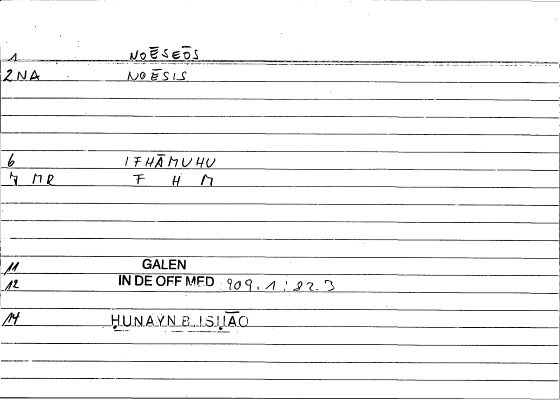 1 NOĒSEŌS
2 NA NOĒSIS
6 IFHĀMUHU
7 MR F H M
11 GALEN
12 IN DE OFF MED 909.1 : 22.3
14 ḤUNAYN B. ISḤĀQ